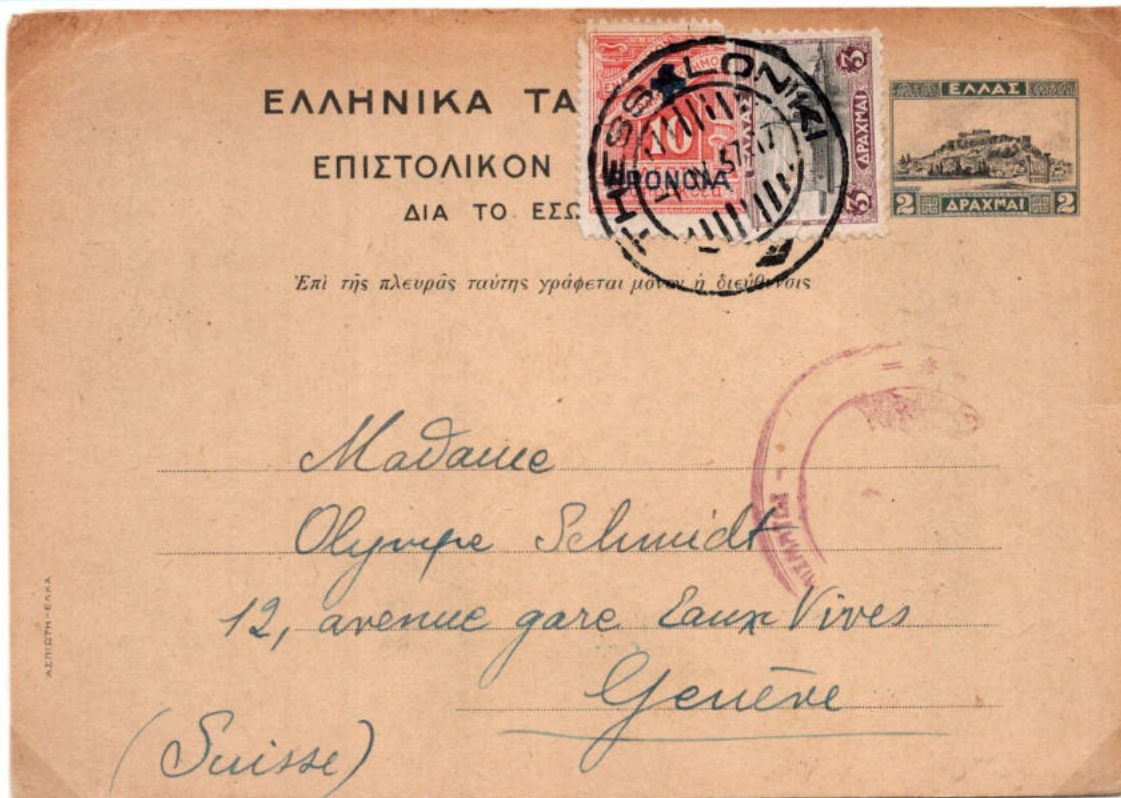 ΕΛΛΗΝΙΚΑ ΤΑ
ΕΠΙΣΤΟΛΙΚΟΝ
ΔΙΑ ΤΟ ΕΣΩ
Ἐπὶ τῆς πλευρᾶς ταύτης γράφεται μόνον ἡ διεύθυνσις
10
ΠΡΟΝΟΙΑ
ΕΛΛΑΣ
3
ΔΡΑΧΜΑΙ
3
THESSALONIKI
ΕΛΛΑΣ
2 ΔΡΑΧΜΑΙ 2
Madame
Olympe Schmidt
12, avenue gare Eaux Vives
Genève
(Suisse)
ΑΣΠΙΩΤΗ-ΕΛΚΑ